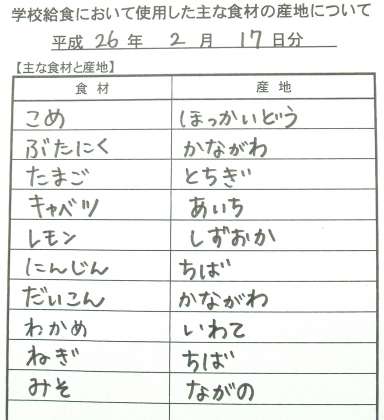 学校給食において使用した主な食材の産地について
平成 26 年 2 月 17 日分
【主な食材と産地】
食 材 産 地
こめ ほっかいどう
ぶたにく かながわ
たまご とちぎ
キャベツ あいち
レモン しずおか
にんじん ちば
だいこん かながわ
わかめ いわて
ねぎ ちば
みそ ながの